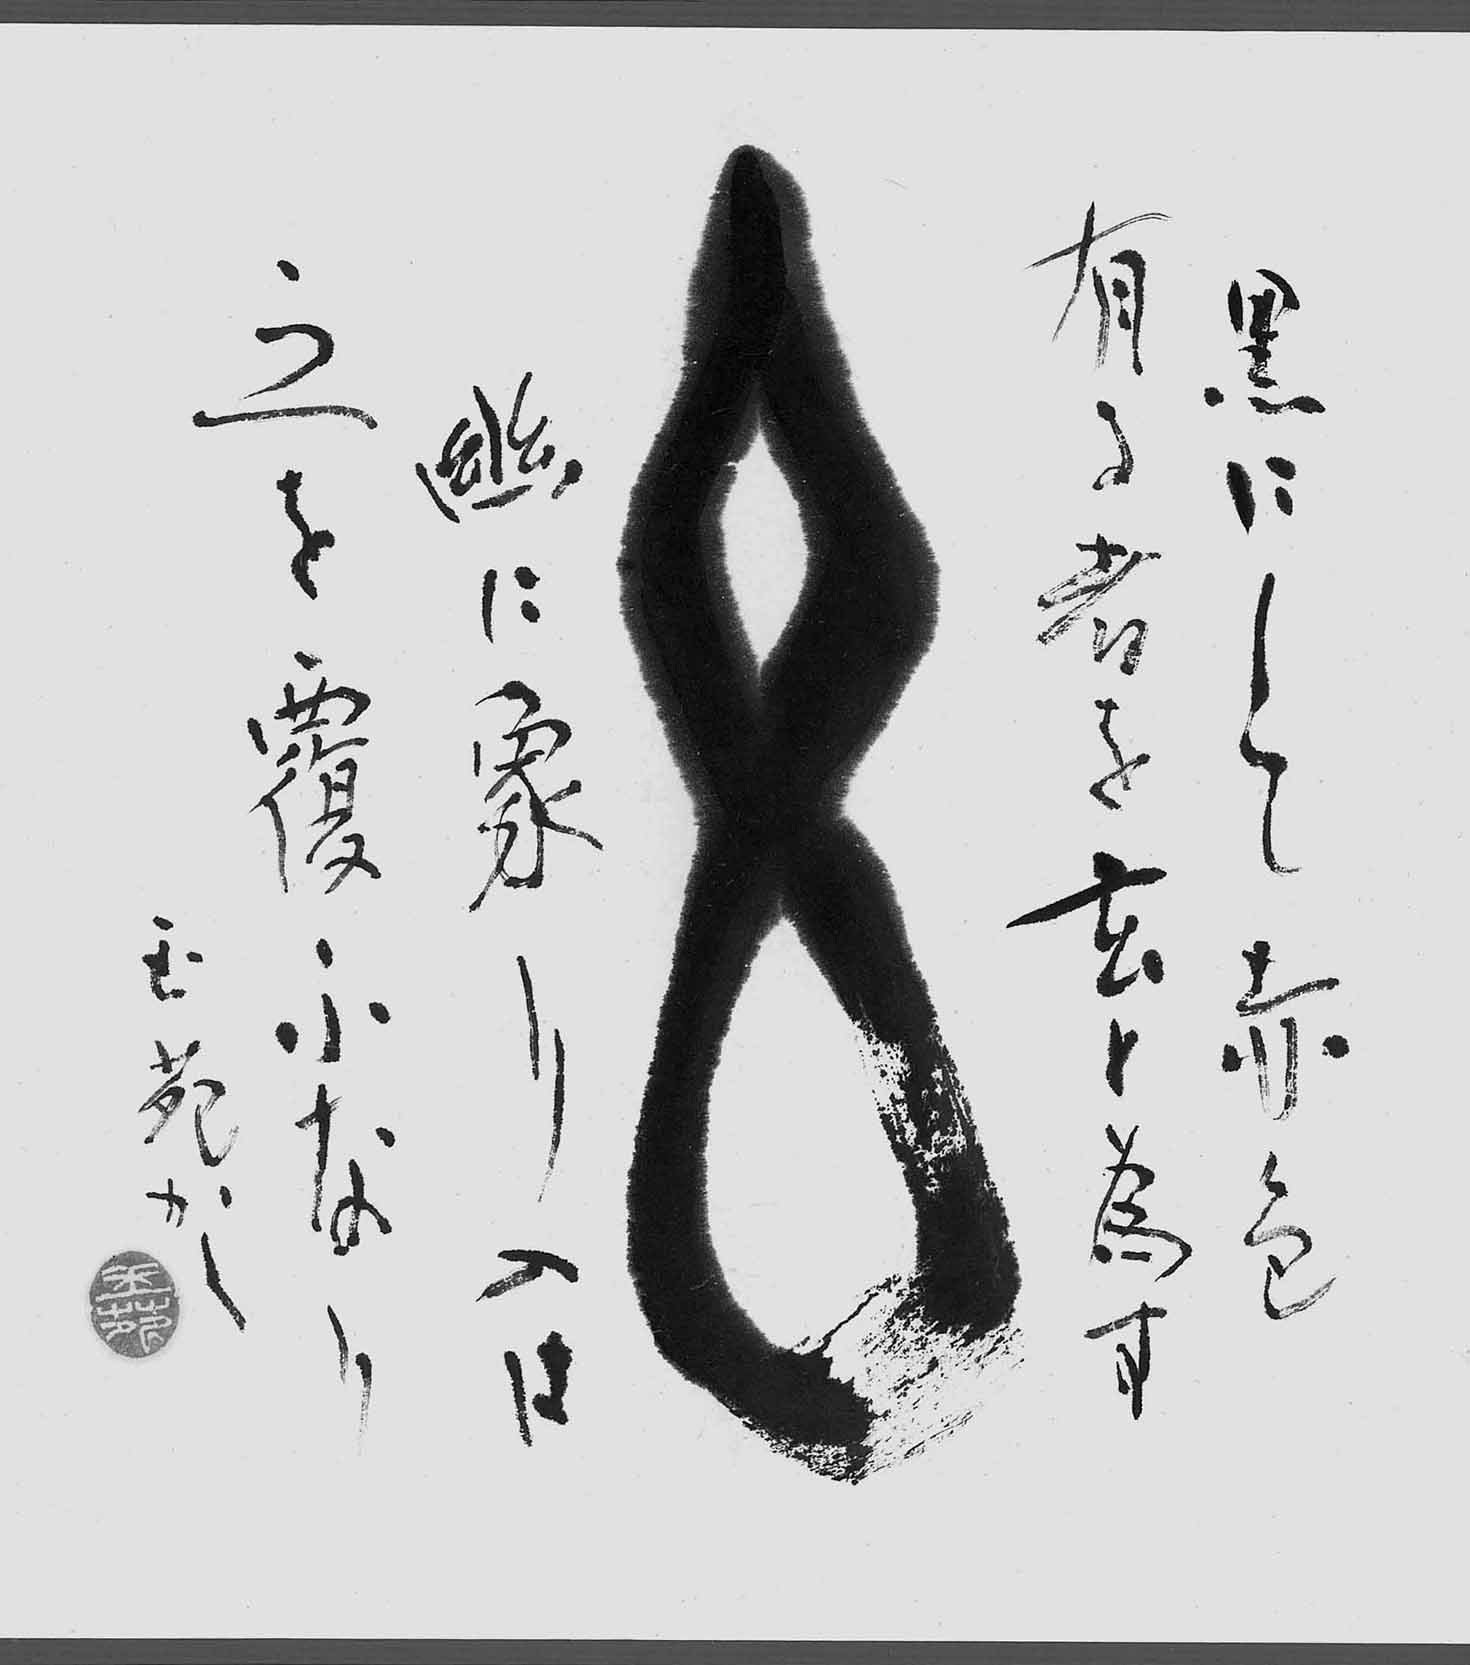 黒にして赤色
有る者を玄と為す
玄
幽に象り入は
之を覆ふなり
玉苑かく
玉苑